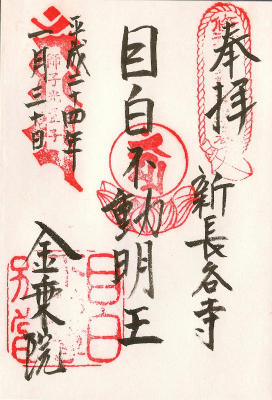 奉拝
新長谷寺
目白不動明王
平成二十四年
一月三十日
金乗院
目白
別當